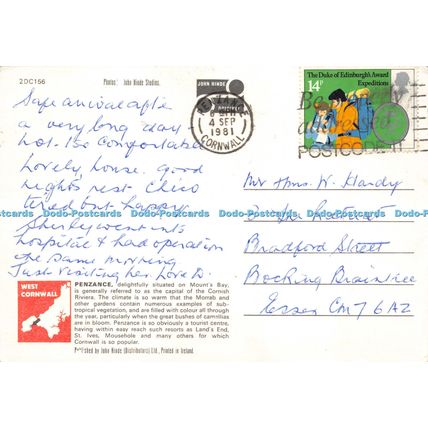 2DC156
Photos: John Hinde Studios.
JOHN HINDE
ORIGINAL
Safe arrival after
a very long day.
hot. So comfortable
lovely house. Good
nights rest.
tired but happy.
Shirley went into
hospital & had operation
the same morning
Just visiting her. Love D.
WEST
CORNWALL
PENZANCE, delightfully situated on Mount's Bay,
is generally referred to as the capital of the Cornish
Riviera. The climate is so warm that the Morrab and
other gardens contain numerous examples of sub-
tropical vegetation, and are filled with colour all through
the year, particularly when the great bushes of camellias
are in bloom. Penzance is so obviously a tourist centre,
having within easy reach such resorts as Land's End,
St. Ives, Mousehole and many others for which
Cornwall is so popular.
Published by John Hinde (Distributors) Ltd., Printed in Ireland.
PENZANCE
4 SEP
1981
CORNWALL
The Duke of Edinburgh's Award
Expeditions
14P
Be properly
addressed
POSTCODE IT
Mr & Mrs. W. Hardy
Bradford Street
Bocking Braintree
Essex CM7 6AZ
Dodo-Postcards Dodo-Postcards Dodo-Postcards Dodo-Postcards Dodo-Postcards
Dodo-Postcards Dodo-Postcards Dodo-Postcards Dodo-Postcards Dodo-Postcards